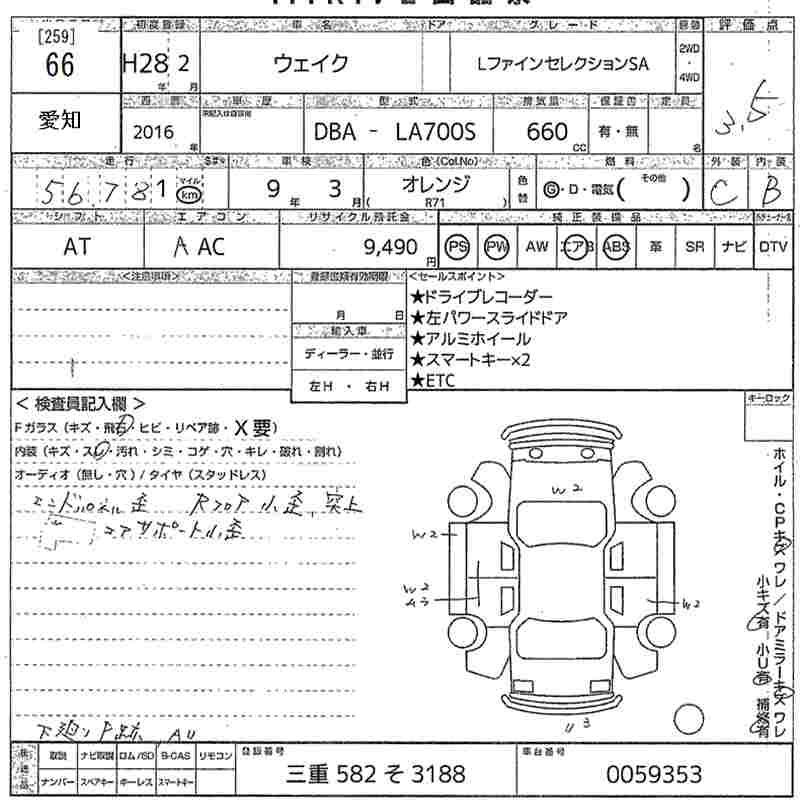 [259]
初度登録 車名 ドア グレード 評価点
66 H28 年 2 月 ウェイク LファインセレクションSA 2WD ・ 4WD 3.5
車歴 型式 排気量 定員
愛知 2016 年 DBA - LA700S 660 CC 有・無 名
走行 車検 色(Col.No) 燃料 外装 内装
56,781 マイル km 9 年 3 月 オレンジ ( R71 ) 色替 G・D・電気( その他 ) C B
シフト エアコン リサイクル預託金 純正装備品
AT A AC 9,490 円 PS PW AW エアB ABS 革 SR ナビ DTV
<注意事項> 登録書類有効期限 <セールスポイント>
月 日 ★ドライブレコーダー
輸入車 ★左パワースライドドア
ディーラー・並行 ★アルミホイール
左H ・ 右H ★スマートキー×2
★ETC
< 検査員記入欄 > キーロック
Fガラス (キズ・飛石・ヒビ・リペア跡・X要)
内装 (キズ・スレ・汚れ・シミ・コゲ・穴・キレ・破れ・割れ)
オーディオ (無し・穴) / タイヤ (スタッドレス)
エンドパネル歪 Rフロア小歪、突上
コアサポート小歪
W2
W2
W2
W2
U3
ホイル・CPキズ ワレ / ドアミラーキズ ワレ
小キズ有 小U有 補修有
下廻り P跡 AU
取説 ナビ取説 ロム/SD B-CAS リモコン 登録番号 車台番号
ナンバー スペアキー キーレス スマートキー 三重 582 そ 3188 0059353